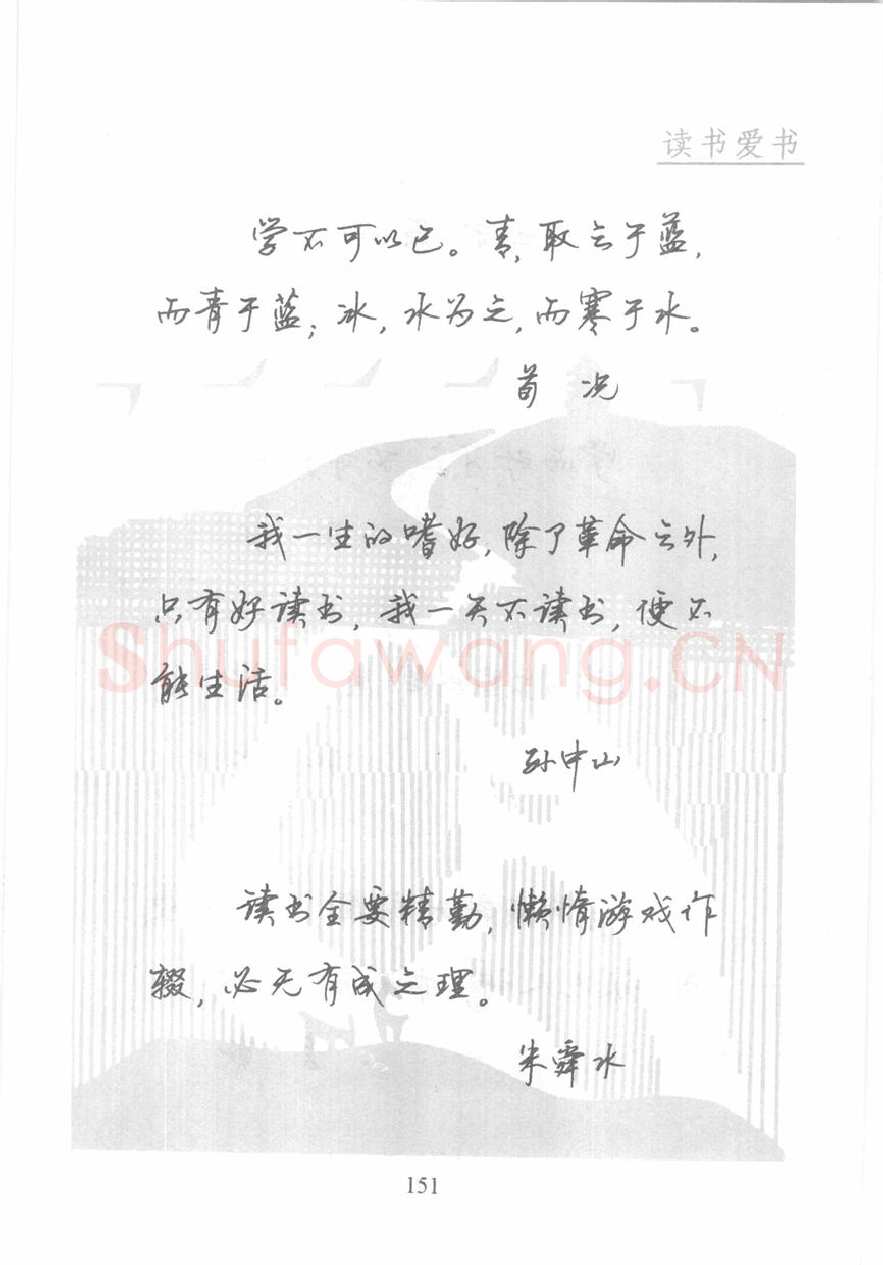 读书爱书
学不可以已。青,取之于蓝,
而青于蓝;冰,水为之,而寒于水。
荀 况
我一生的嗜好,除了革命之外,
只有好读书,我一天不读书,便不
能生活。
Shufawang.CN
孙中山
读书全要精勤,懒惰游戏作
辍,必无有成之理。
朱舜水
151